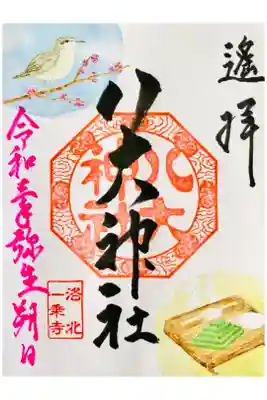 遙拝
八大神社
八大
神社
洛北
一乗寺
令和 彌生朔日